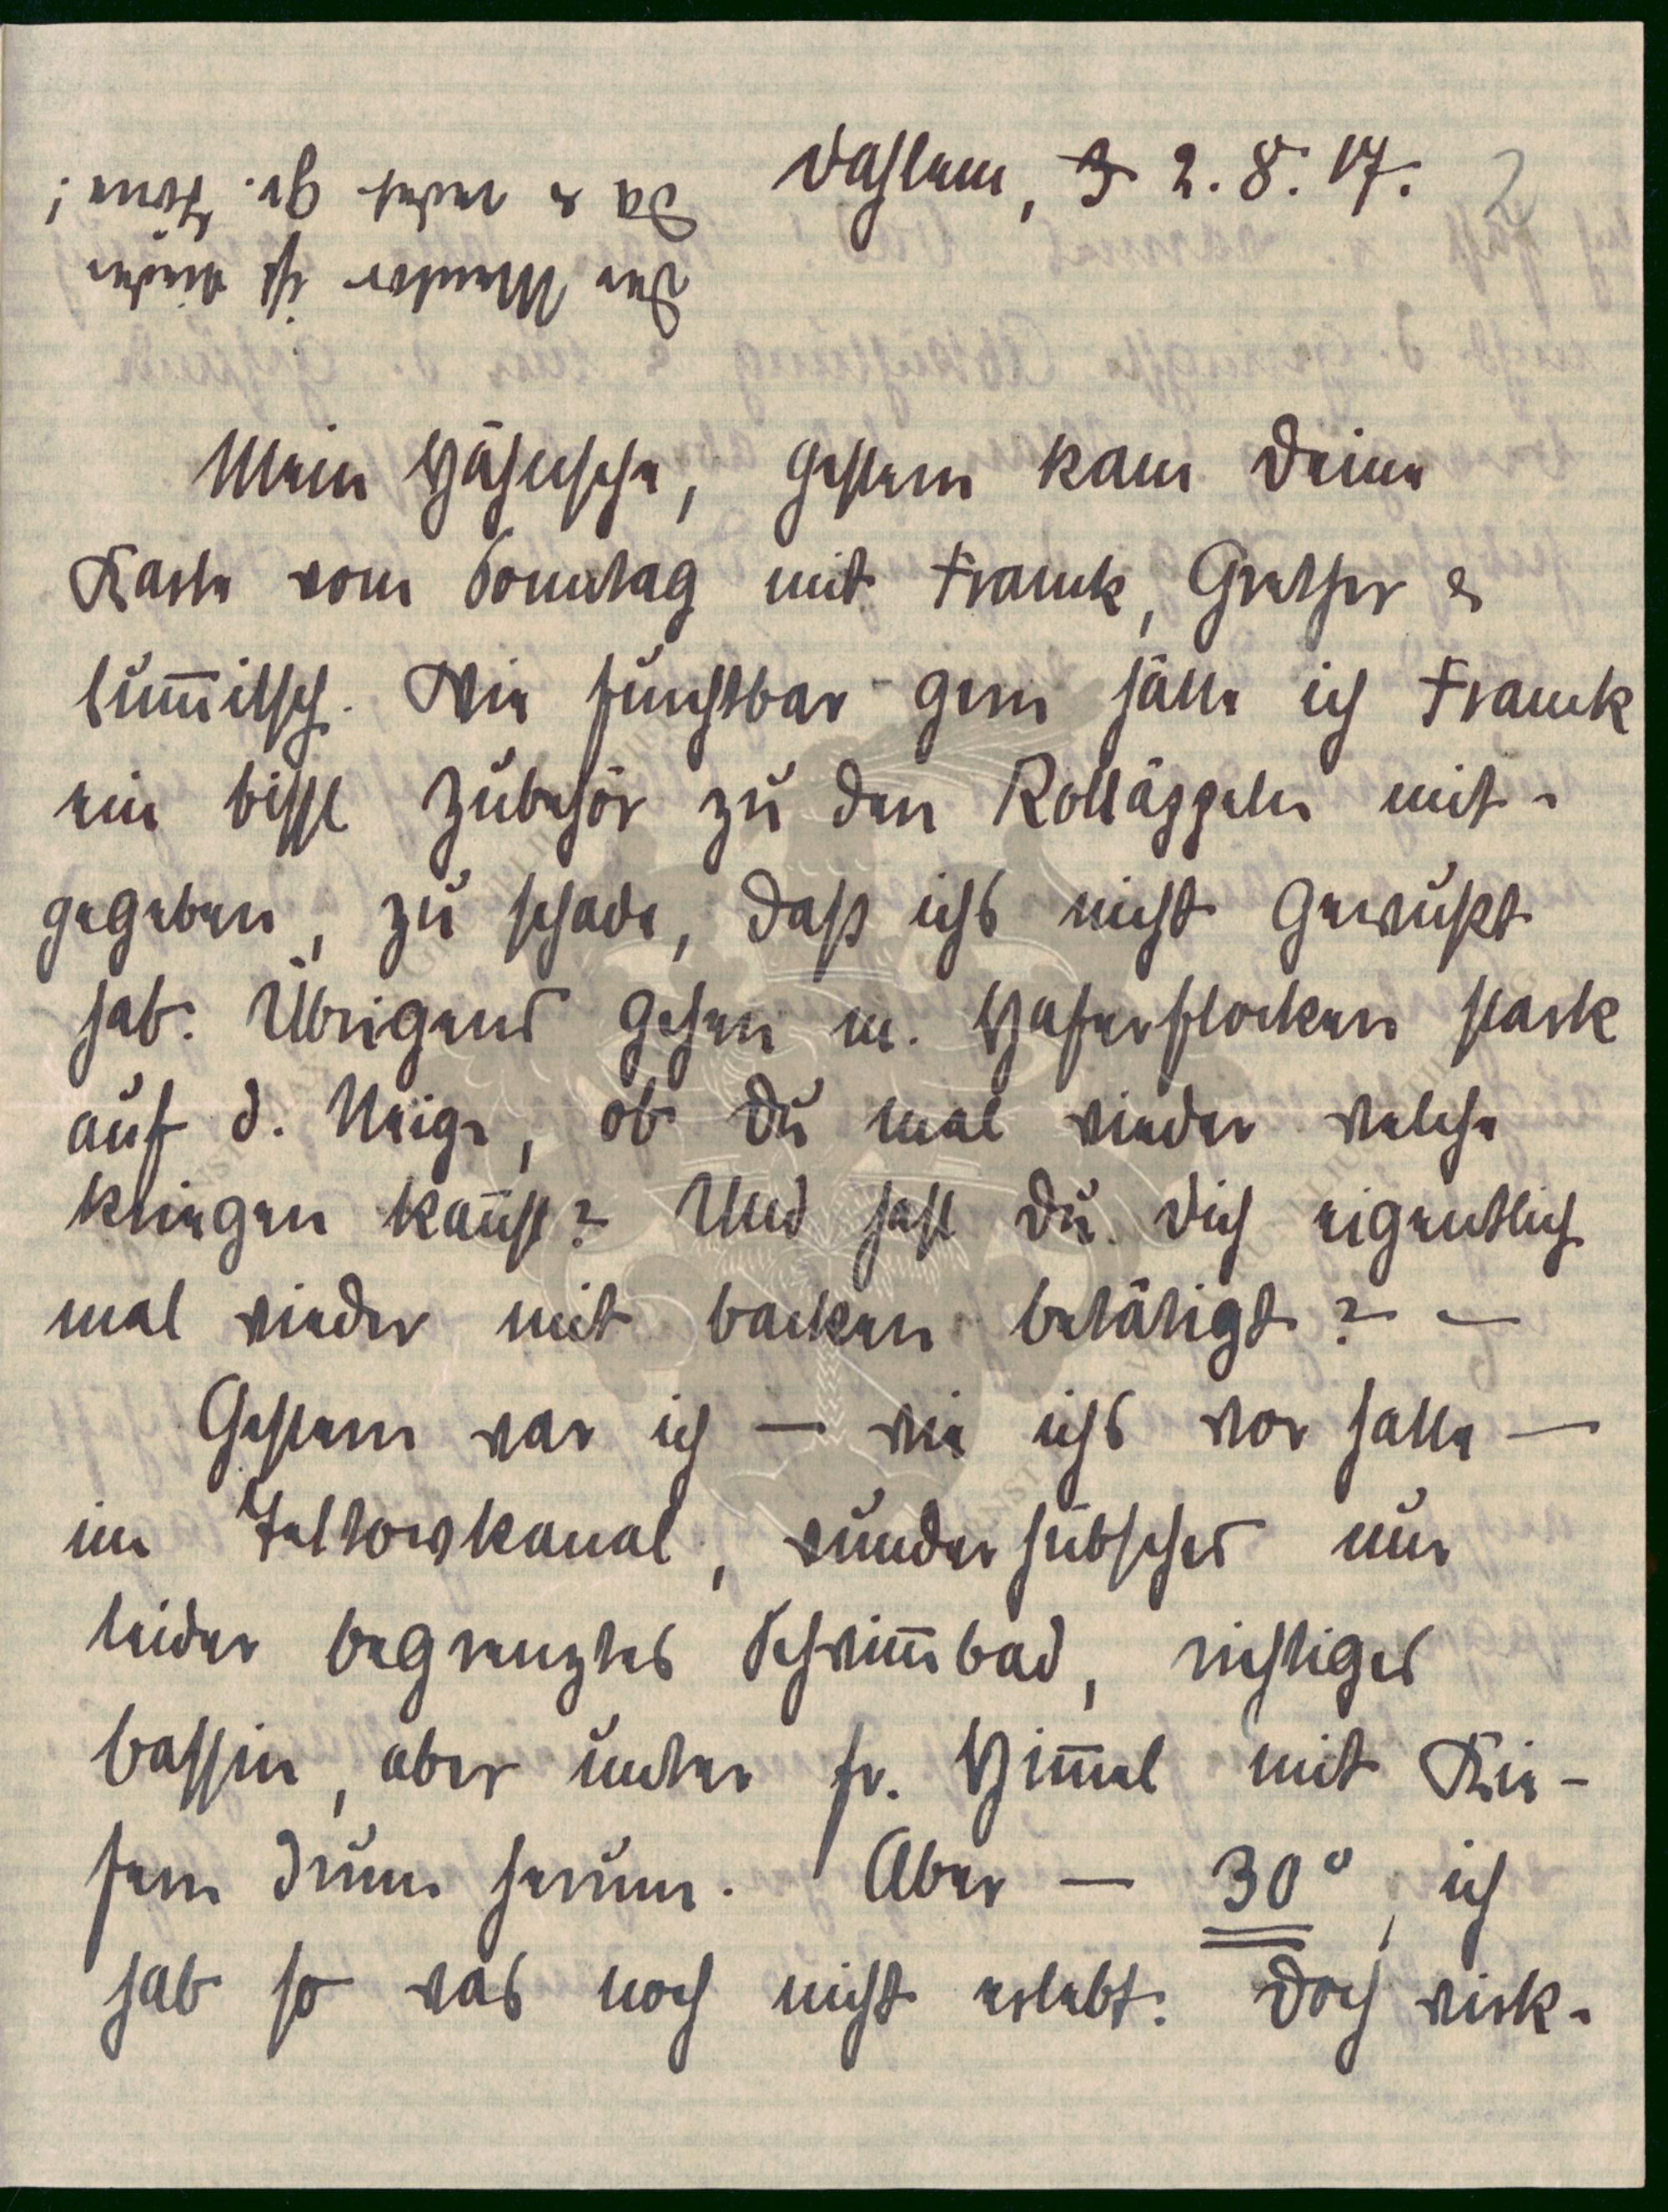 Dahlem, 3 2.8.17.
2
Da & recht gr. Frau;
Der Meister ist wieder
Mein Hähnsche, gestern kam Deine
Karte vom Sonntag mit Franck, Grether &
Lum̅itsch. Wie furchtbar gern hätte ich Franck
ein bissl Zubehör zu den Rolläppeln mit-
gegeben, zu schade, daß ichs nicht gewußt
hab. Übrigens gehen m. Haferflocken stark
auf d. Neige, ob Du mal wieder welche
kriegen kan̅st? Und hast Du Dich eigentlich
mal wieder mit backen betätigt? —
Gestern war ich — wie ichs vor hatte —
im Teltowkanal, wunderhübsches nur
leider begrenztes Schwim̅bad, richtiges
Bassin, aber unter fr. Him̅el mit Kie-
fern drum herum. Aber — 30°, ich
hab so was noch nicht erlebt. Doch wirk-